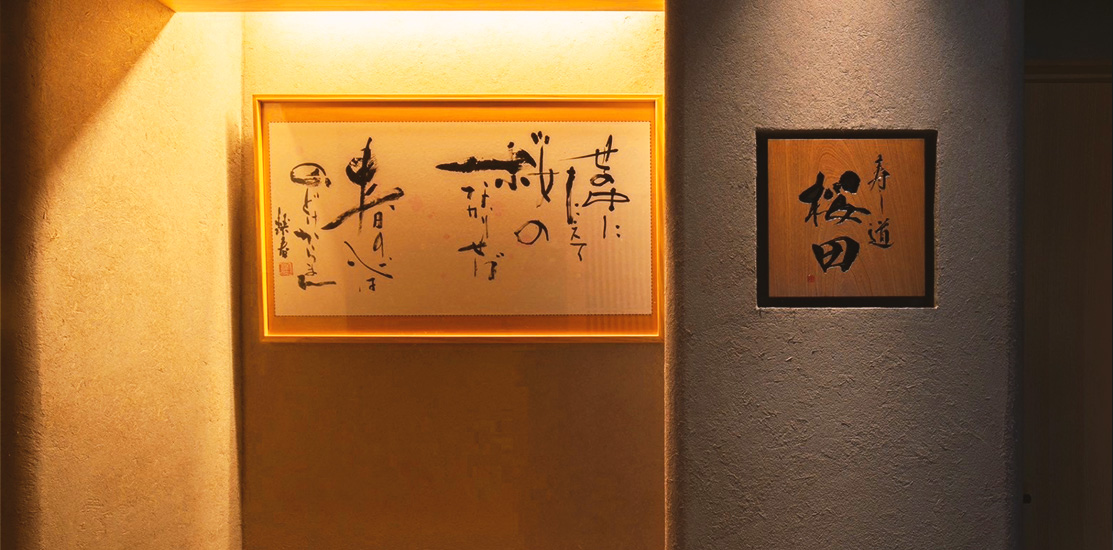 世の中に
たえて
桜の
なかりせば
春の心は
のどけからまし
寿し道
桜田